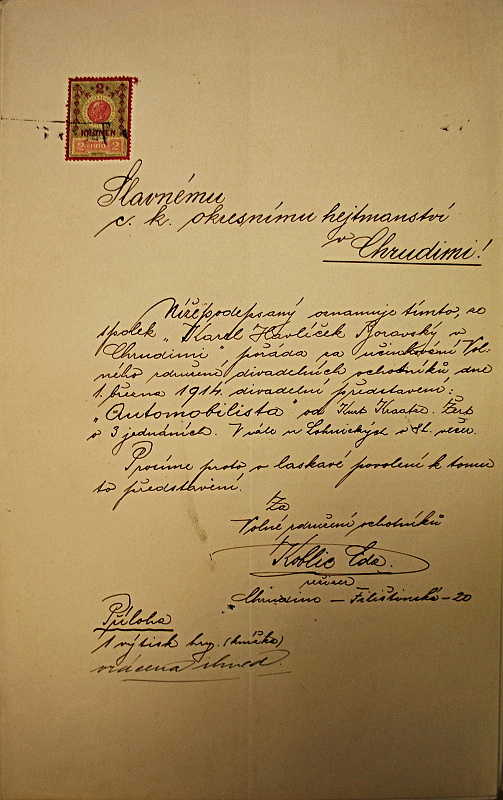 2
KRONEN
2 1910 2
Slavnému
c. k. okresnímu hejtmanství
v Chrudimi!
Nížepodepsaný oznamuje tímto, že
spolek „Karel Havlíček Borovský v
Chrudimi" pořádá za účinkování Vol-
ného sdružení divadelních ochotníků dne
1. března 1914. divadelní představení:
„Automobilista" od Kurt Kraatz. Žert
o 3 jednáních. V sále u Lohnických v 8h. večer.
Prosíme proto o laskavé povolení k tomu
to představení.
Za
Volné sdružení ochotníků
Koblic Eda.
režiser
Chrudim – Filištínská – 20
Příloha
1 výtisk hry. (knížka)
vrácena ihned.